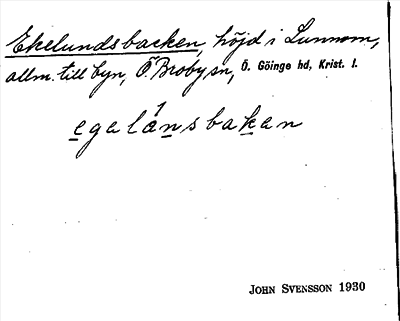 Ekelundsbacken, höjd i Lunnom,
allm. till byn, Ö. Broby sn, Ö. Göinge hd, Krist. l.
egelánsbakan
JOHN SVENSSON 1930